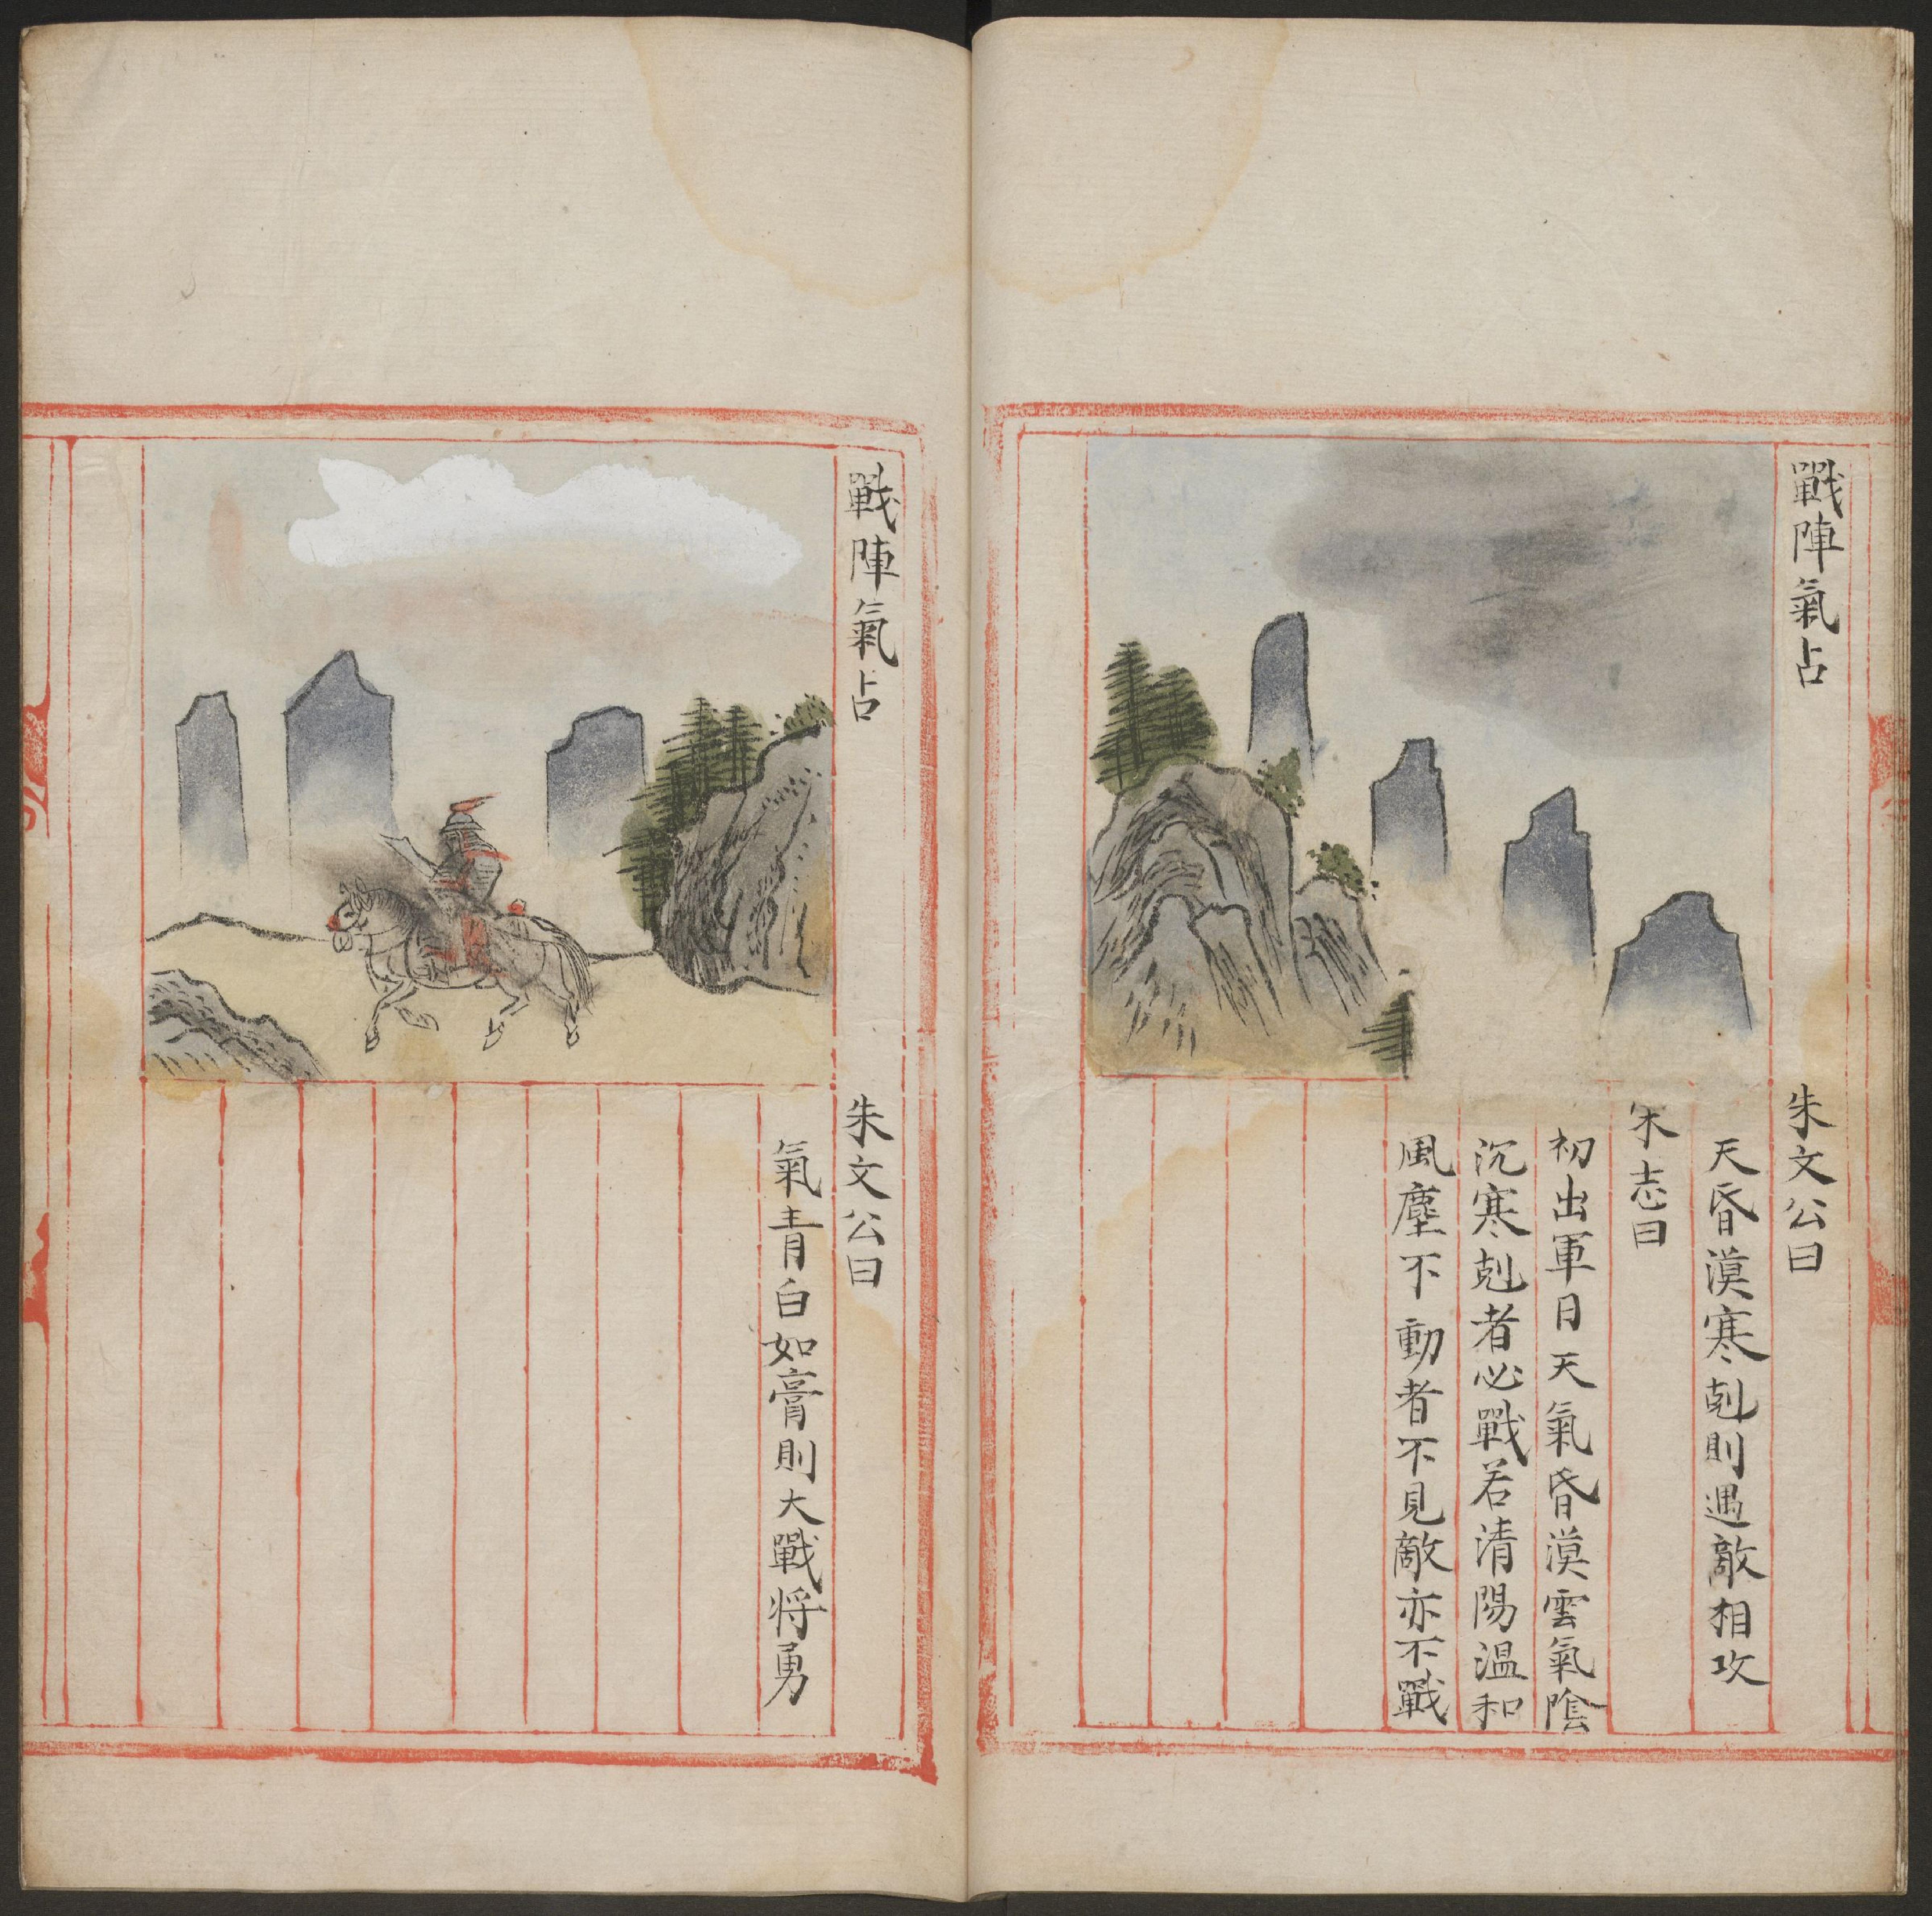 戰陣氣占
朱文公曰
天昏漠寒剋則遇敵相攻
宋志曰
初出軍日天氣昏漠雲氣陰
沉寒剋者必戰若清陽溫和
風塵不動者不見敵亦不戰
戰陣氣占
朱文公曰
氣青白如膏則大戰将勇